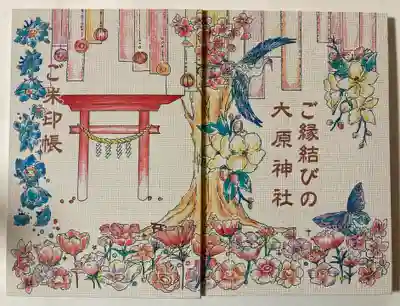 ご縁結びの
大原神社
ご朱印帳